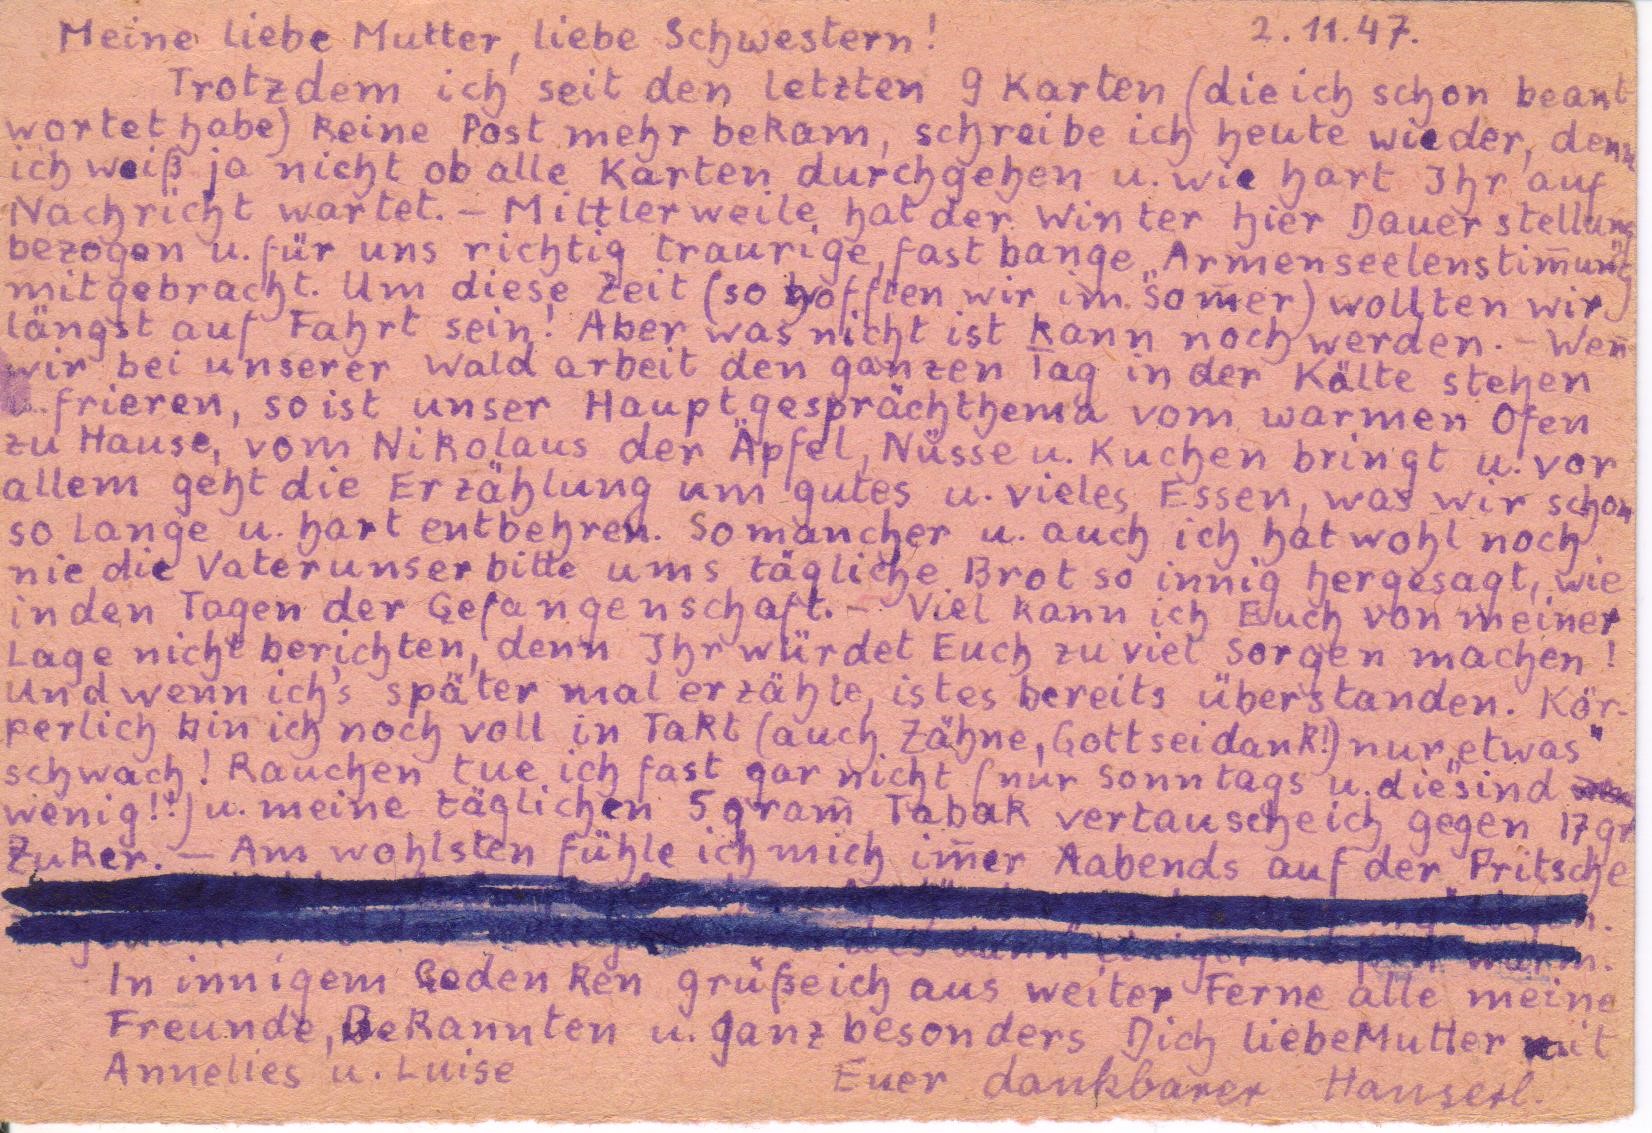 Meine liebe Mutter, liebe Schwestern! 2.11.47.
Trotzdem ich seit den letzten 9 Karten (die ich schon beant
wortet habe) keine Post mehr bekam, schreibe ich heute wieder, denn
ich weiß ja nicht ob alle Karten durchgehen u. wie hart Ihr auf
Nachricht wartet. – Mittlerweile hat der Winter hier Dauerstellung
bezogen u. für uns richtig traurige, fast bange „Armenseelenstim̄ung"
mitgebracht. Um diese Zeit (so hofften wir im Som̄er) wollten wir
längst auf Fahrt sein! Aber was nicht ist kann noch werden. – Wen̄
wir bei unserer Waldarbeit den ganzen Tag in der Kälte stehen
u. frieren, so ist unser Hauptgesprächthema vom warmen Ofen
zu Hause, vom Nikolaus der Äpfel, Nüsse u. Kuchen bringt u. vor
allem geht die Erzählung um gutes u. vieles Essen, was wir schon
so lange u. hart entbehren. So mancher u. auch ich hat wohl noch
nie die Vaterunserbitte ums tägliche Brot so innig hergesagt, wie
in den Tagen der Gefangenschaft. – Viel kann ich Euch von meiner
Lage nicht berichten, denn Ihr würdet Euch zu viel Sorgen machen!
Und wenn ich's später mal erzähle, ist es bereits überstanden. Kör-
perlich bin ich noch voll in Takt (auch Zähne, Gottseidank!) nur „etwas"
schwach! Rauchen tue ich fast gar nicht (nur Sonntags u. die sind
wenig!!) u. meine täglichen 5 gram̄ Tabak vertausche ich gegen 17 gr
Zuker. – Am wohlsten fühle ich mich im̄er Aabends auf der Pritsche
warm.
In innigem Gedenken grüße ich aus weiter Ferne alle meine
Freunde, Bekannten u. ganz besonders Dich liebe Mutter mit
Annelies u. Luise Euer dankbarer Hanserl.